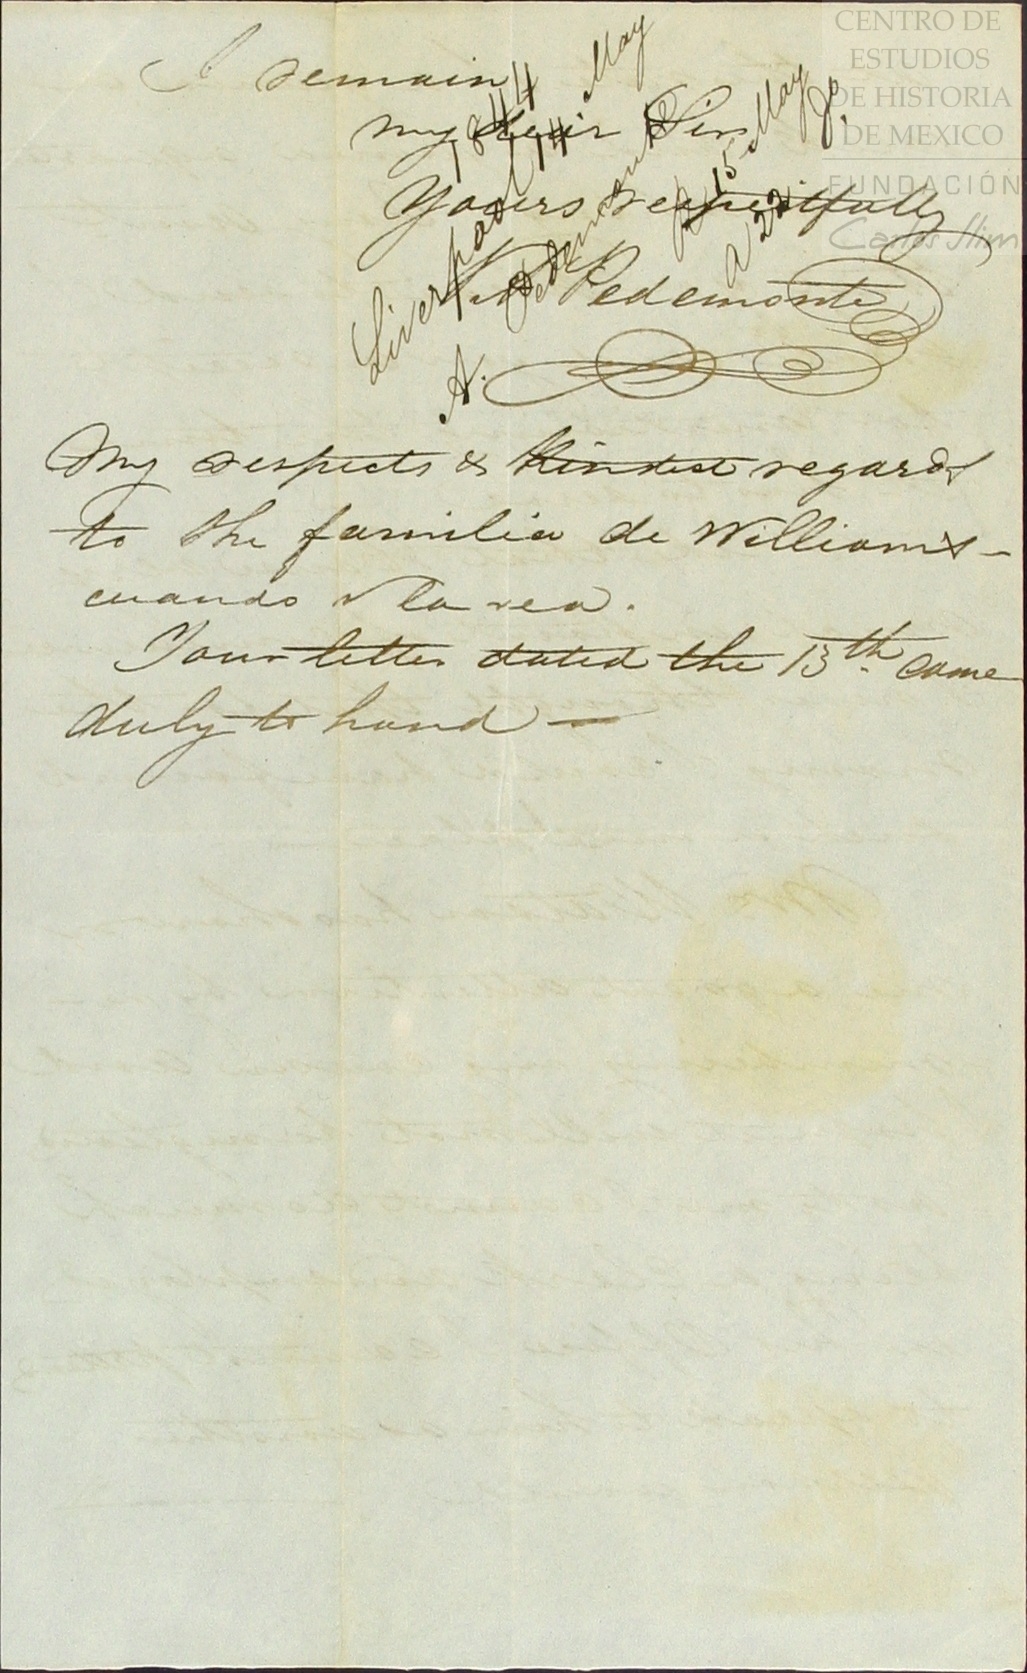 I remain
my dear Sir
Yours respectfully
Pedemonte
My respects & kindest regards
to the familia de Williams -
cuando v la vea.
Your letter dated the 13th. came
duly to hand —
1844
Liverpool 14 May
A. Pedemonte
R 15 May
a 22 do
CENTRO DE
ESTUDIOS
DE HISTORIA
DE MEXICO
FUNDACIÓN
Carlos Slim